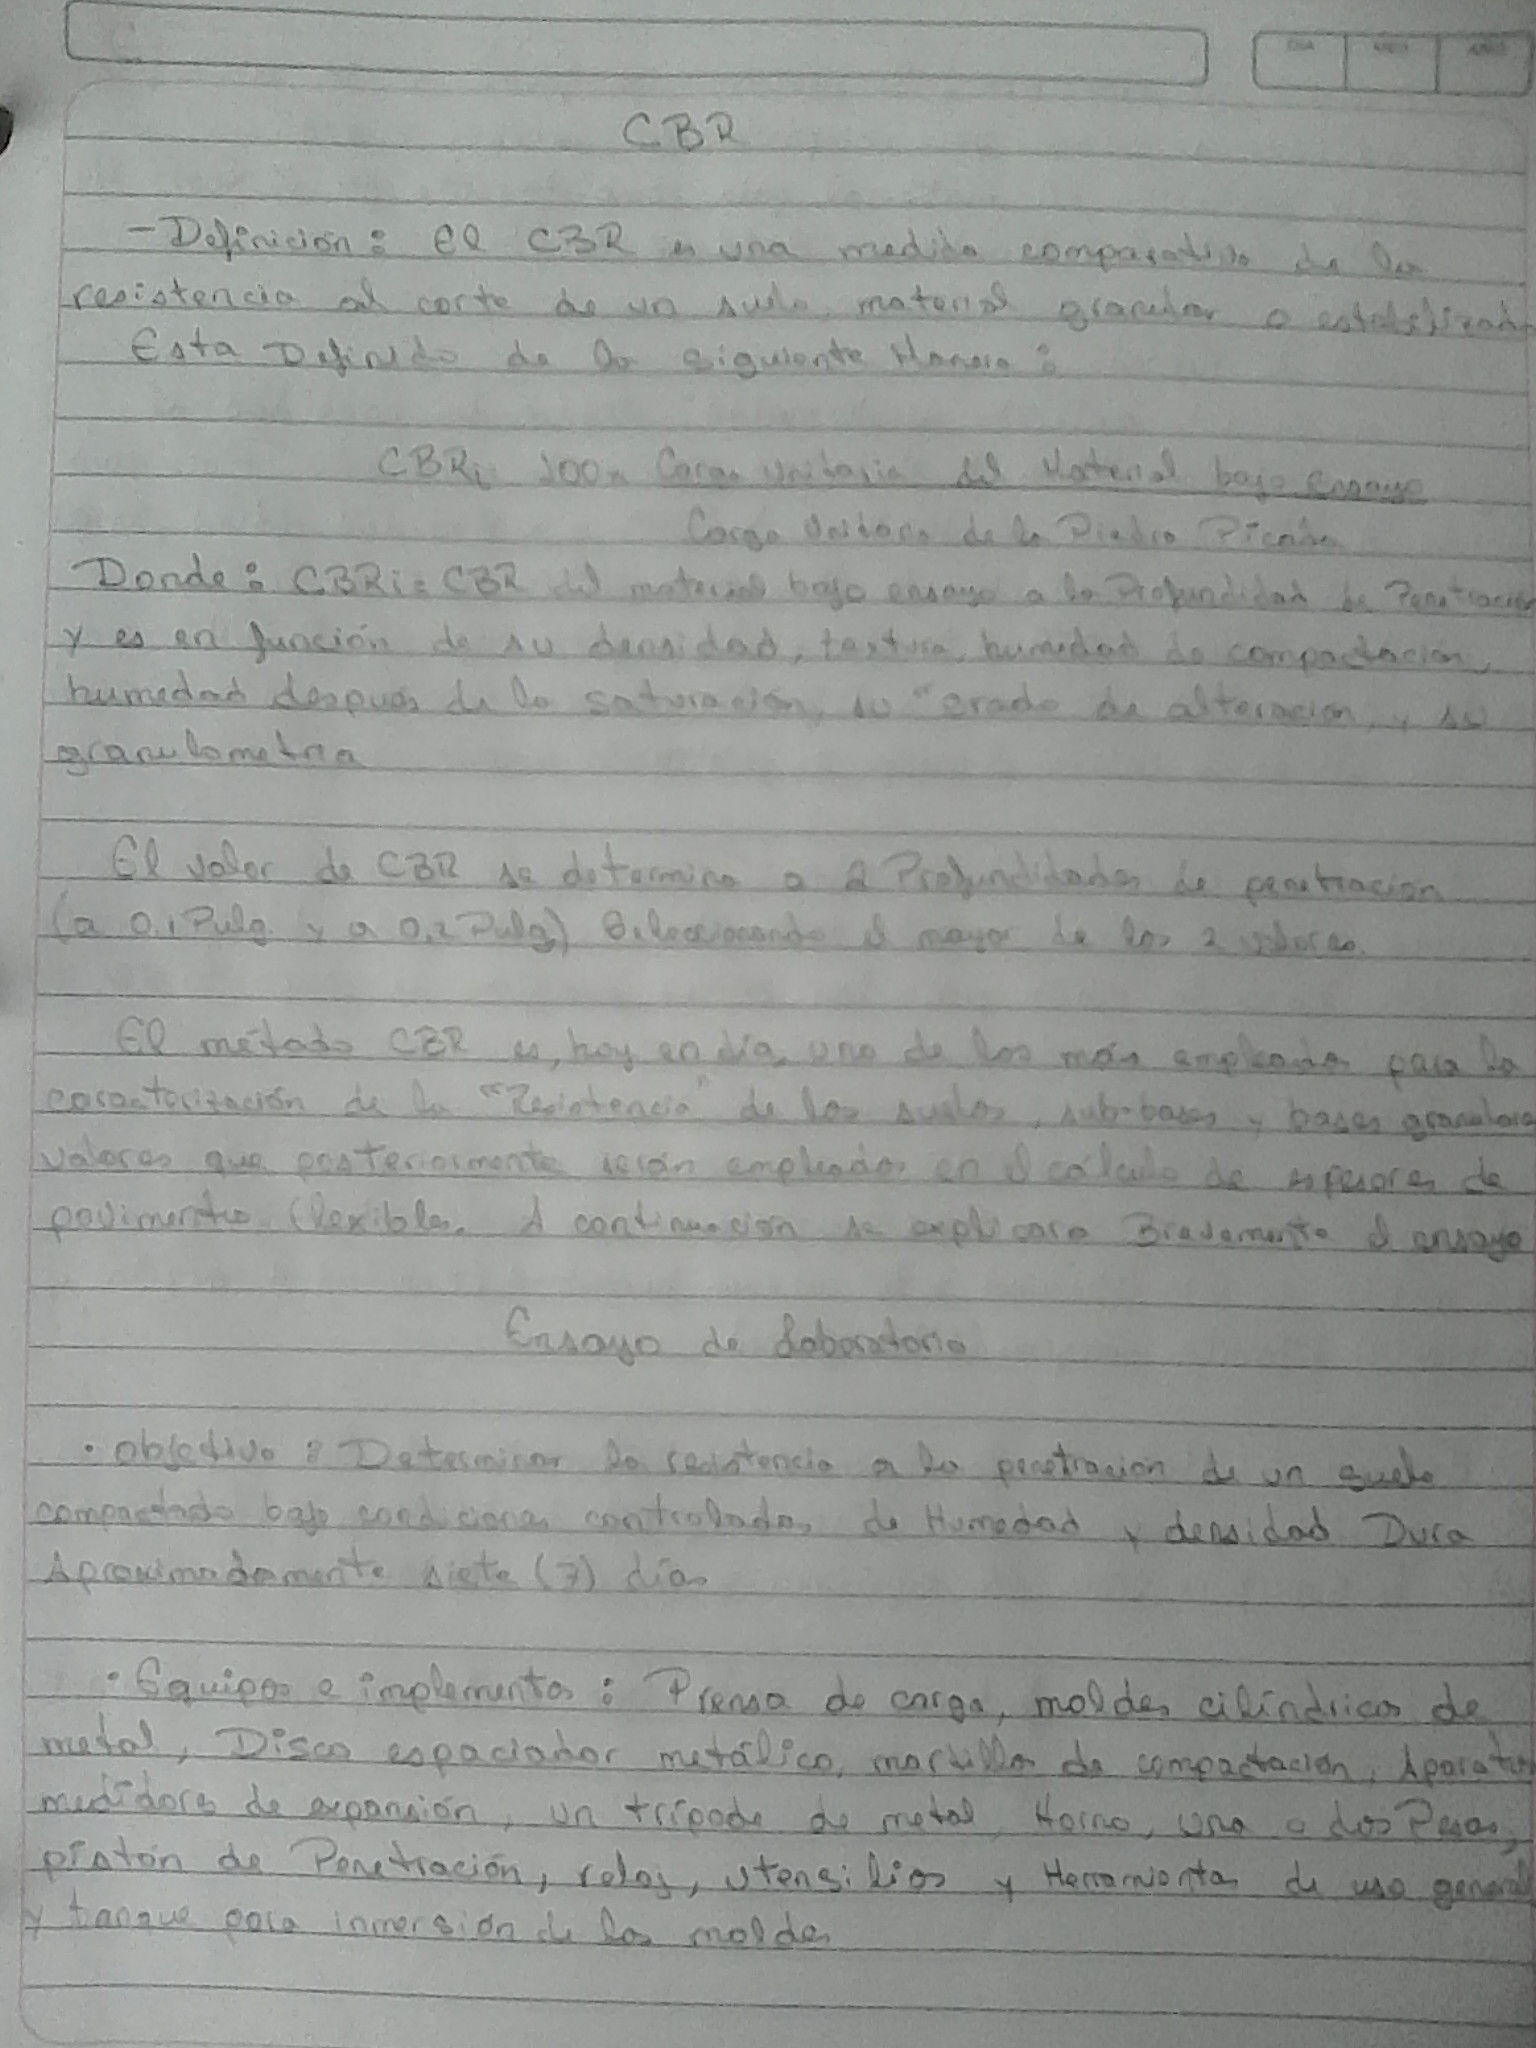 DIA MES AÑO
CBR
- Definición: El CBR es una medida comparativa de la
resistencia al corte de un suelo, material granular o estabilizado
Esta Definido de la siguiente Manera:
CBRi = 100 x Carga Unitaria del Material bajo ensayo
Carga Unitaria de la Piedra Picada
Donde: CBRi = CBR del material bajo ensayo a la Profundidad de Penetración
y es en función de su densidad, textura, humedad de compactación,
humedad despues de la saturación, su "grado de alteración, y su
granulometria
El valor de CBR se determina a 2 Profundidades de penetración
(a 0,1 Pulg. y a 0,2 Pulg) Seleccionando el mayor de los 2 valores.
El método CBR es, hoy en día, uno de los más empleados para la
caracterización de la "Resistencia" de los suelos, sub-bases y bases granulares
valores que posteriormente serán empleados en el cálculo de espesores de
pavimentos flexibles. A continuación se explicara Brevemente el ensayo
Ensayo de Laboratorio
• Objetivo: Determinar la resistencia a la penetración de un suelo
compactado bajo condiciones controladas, de Humedad y densidad Dura
Aproximadamente siete (7) días
• Equipos e implementos: Prensa de carga, moldes cilíndricos de
metal, Disco espaciador metálico, martillos de compactación, Aparatos
medidores de expansión, un trípode de metal, Horno, una o dos Pesas,
pistón de Penetración, reloj, utensilios y Herramientas de uso general
y tanque para inmersión de los moldes